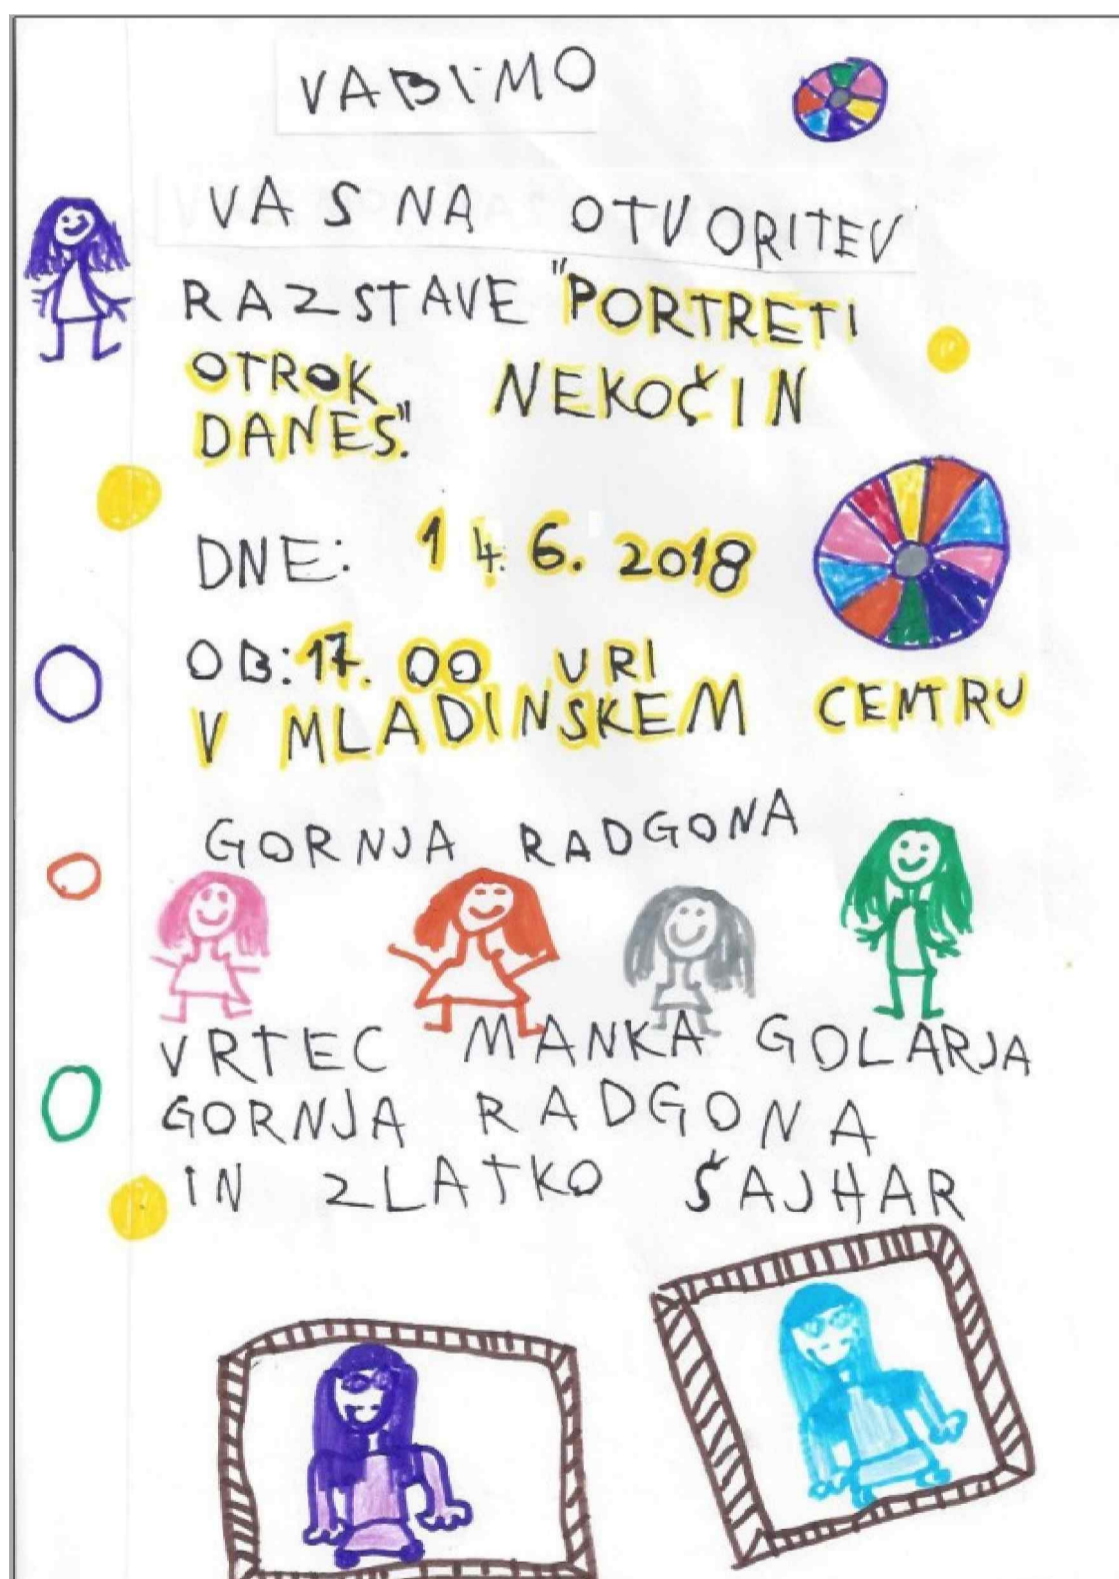 VABIMO
VAS NA OTVORITEV
RAZSTAVE "PORTRETI
OTROK NEKOČ IN
DANES".
DNE: 14. 6. 2018
OB: 17. 00 URI
V MLADINSKEM CENTRU
GORNJA RADGONA
VRTEC MANKA GOLARJA
GORNJA RADGONA
IN ZLATKO ŠAJHAR